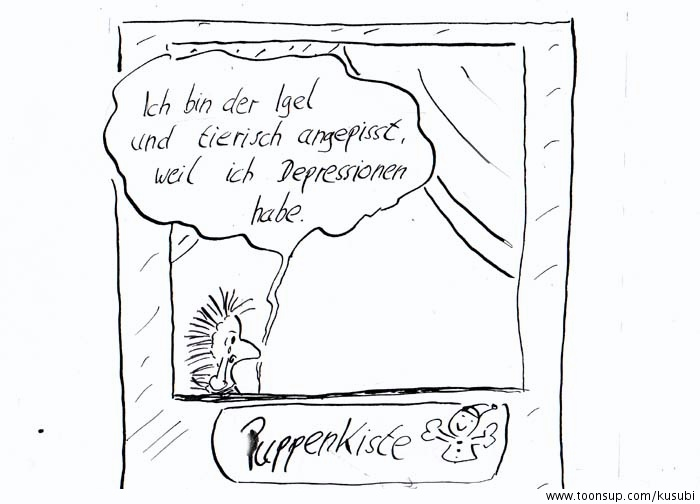 Ich bin der Igel
und tierisch angepisst,
weil ich Depressionen
habe.
PuppenKiste
www.toonsup.com/kusubi